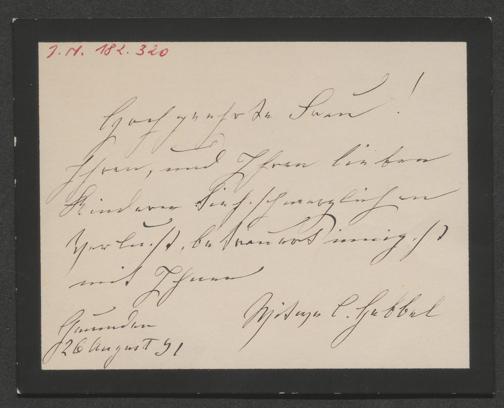 J.N. 182.320
Hochgeehrte Frau!
Ihren, und Ihren lieben
Kinderen tiefschmerzlichen
Verlust, betrauert innigst
mit Ihnen
Witwe C. Hebbel
Gmunden
26 August 91